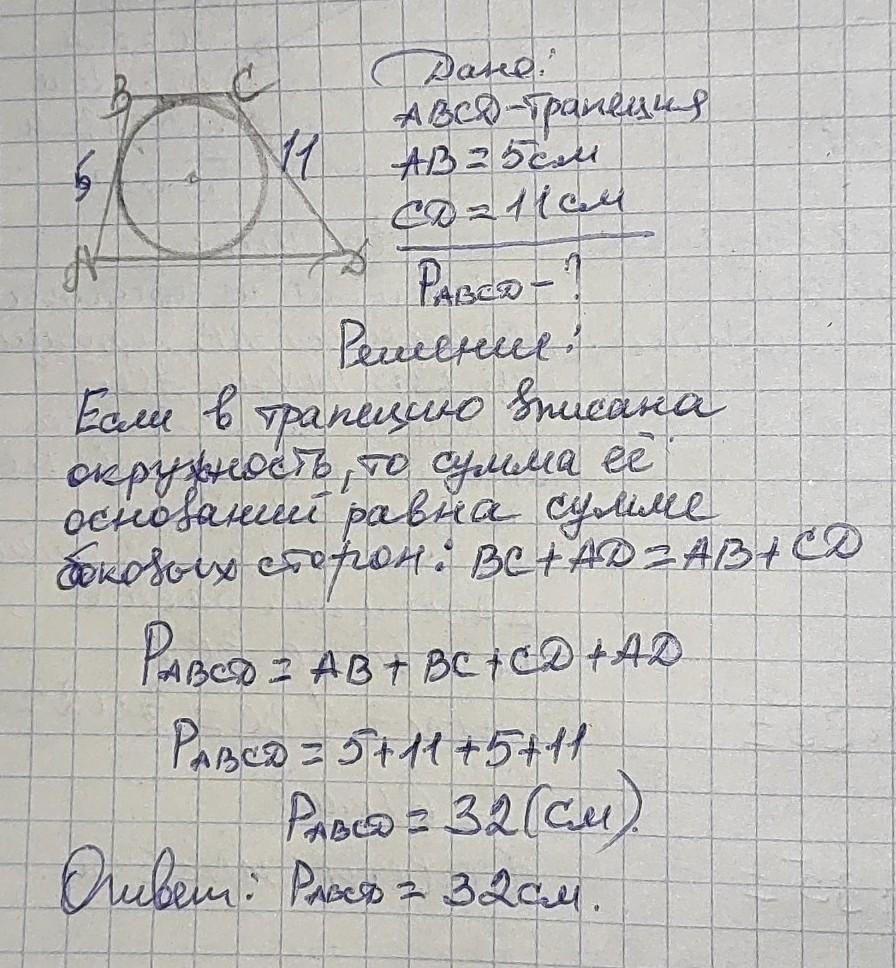 B C
5
11
A D
Дано:
ABCD-трапеция
AB = 5см
CD = 11см
PABCD - ?
Решение:
Если в трапецию вписана
окружность, то сумма её
оснований равна сумме
боковых сторон: BC + AD = AB + CD
PABCD = AB + BC + CD + AD
PABCD = 5+11+5+11
PABCD = 32(см).
Ответ: PABCD = 32см.